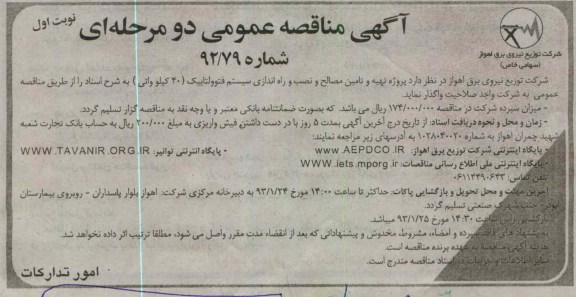 آگهی مناقصه عمومی دو مرحله‌ای
نوبت اول
شماره ۹۲/۷۹
شرکت توزیع نیروی برق اهواز
(سهامی خاص)
شرکت توزیع نیروی برق اهواز در نظر دارد پروژه تهیه و تامین مصالح و نصب و راه اندازی سیستم فتوولتاییک (۴۰ کیلو واتی) به شرح اسناد را از طریق مناقصه
عمومی به شرکت واجد صلاحیت واگذار نماید.
- میزان سپرده شرکت در مناقصه ۱۷۴/۰۰۰/۰۰۰ ریال می باشد. که بصورت ضمانتنامه بانکی معتبر و یا وجه نقد به مناقصه گزار تسلیم گردد.
- زمان و محل و نحوه دریافت اسناد: از تاریخ درج آگهی بمدت ۵ روز با در دست داشتن فیش واریزی به مبلغ ۲۰۰/۰۰۰ ریال به حساب بانک تجارت شعبه
شهید چمران اهواز به شماره ۱۰۲۸۰۴۰۰۲۰ به آدرسهای زیر مراجعه نمایند:
- پایگاه اینترنتی شرکت توزیع برق اهواز: www.AEPDCO.IR - پایگاه انترنتی توانیر: WWW.TAVANIR.ORG.IR
- پایگاه اینترنتی ملی اطلاع رسانی مناقصات: www.iets.mporg.ir
- تلفن تماس: ۰۶۱۱۳۴۹۰۶۴۳
- آخرین مهلت و محل تحویل و بازگشایی پاکات: حداکثر تا ساعت ۱۴:۰۰ مورخ ۹۳/۱/۲۴ به دبیرخانه مرکزی شرکت: اهواز بلوار پاسداران - روبروی بیمارستان
جنب پارک صنعتی تسلیم گردد.
ساعت ۱۴:۳۰ مورخ ۹۳/۱/۲۵ میباشد.
به پیشنهاد های فاقد سپرده و امضاء، مشروط، مخدوش و پیشنهاداتی که بعد از انقضاء مدت مقرر واصل می شود، مطلقا ترتیب اثر داده نخواهد شد.
هزینه آگهی مناقصه به عهده برنده مناقصه است.
سایر اطلاعات و جزییات در اسناد مناقصه مندرج است.
امور تدارکات